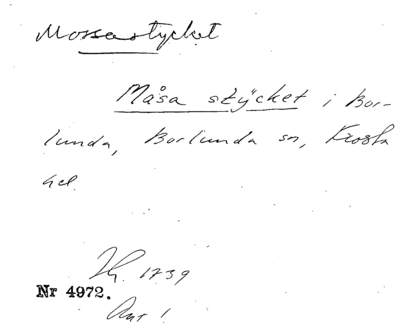 Mossastycket
Måsa stycket i Bor-
lunda, Borlunda sn, Frosta
hd.
1739
Nr 4972.
Akt 1